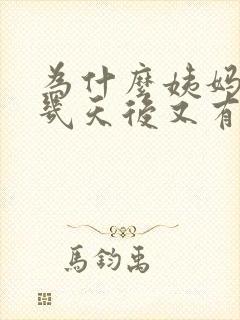 為什麼姨媽
幾天後又有
馬鈞禹